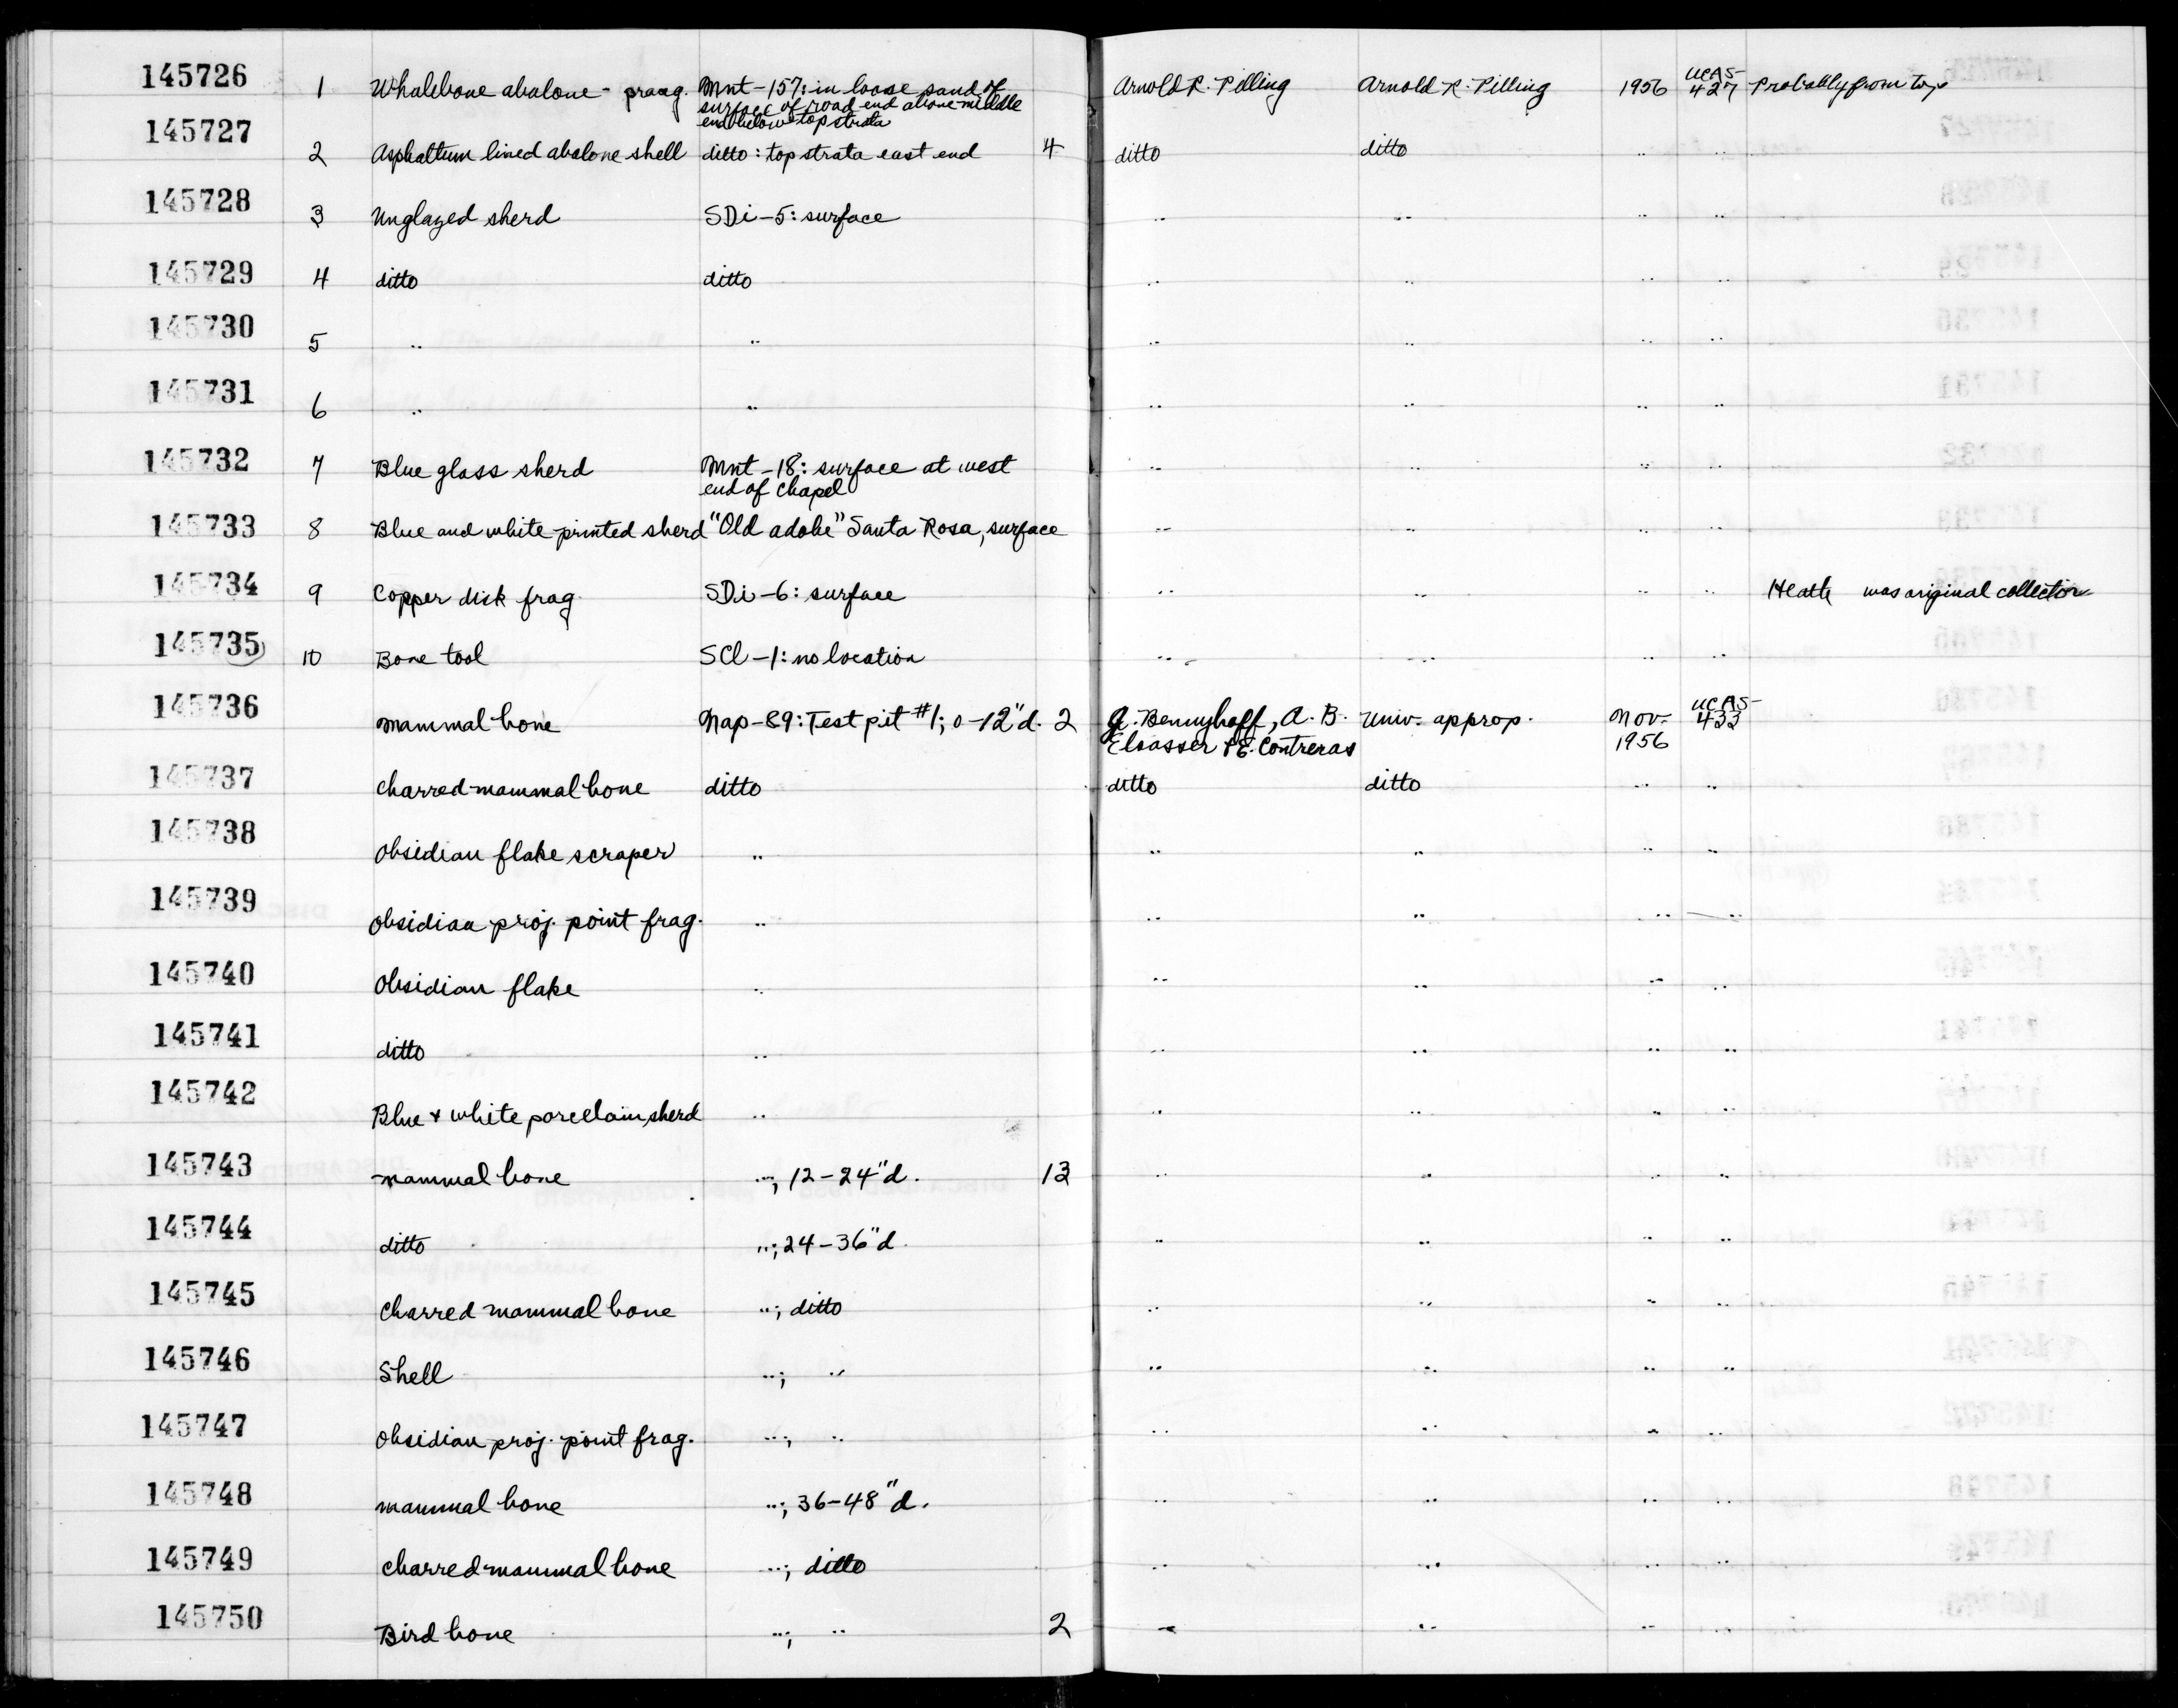 145726 1 Whalebone abalone - praag. Mnt-157: in loose sand of Arnold R. Pilling Arnold R. Pilling 1956 UCAS- Probably from top
surface of road end above middle 427
end below top strata
145727 2 Asphaltum lined abalone shell ditto: top strata east end 4 ditto ditto .. ..
145728 3 Unglazed sherd SDi-5: surface .. .. .. ..
145729 4 ditto ditto .. .. .. ..
145730 5 .. .. .. .. .. ..
145731 6 .. .. .. .. .. ..
145732 7 Blue glass sherd Mnt-18: surface at west .. .. .. ..
end of Chapel
145733 8 Blue and white printed sherd "Old adobe" Santa Rosa, surface .. .. .. ..
145734 9 Copper disk frag. SDi-6: surface .. .. .. .. Heath was original collector
145735 10 Bone tool SCl-1: no location .. .. .. ..
145736 mammal bone Nap-89: Test pit #1; 0-12"d. 2 J. Bennyhoff, A. B. Univ. approp. Nov. UCAS-
Elsasser & E. Contreras 1956 433
145737 charred mammal bone ditto ditto ditto .. ..
145738 Obsidian flake scraper .. .. .. .. ..
145739 obsidian proj. point frag. .. .. .. .. ..
145740 Obsidian flake .. .. .. .. ..
145741 ditto .. .. .. .. ..
145742 Blue & white porcelain sherd .. .. .. .. ..
145743 mammal bone ..; 12-24"d. 13 .. .. .. ..
145744 ditto ..; 24-36"d. .. .. .. ..
145745 Charred mammal bone ..; ditto .. .. .. ..
145746 Shell ..; .. .. .. .. ..
145747 Obsidian proj. point frag. ..; .. .. .. .. ..
145748 mammal bone ..; 36-48"d. .. .. .. ..
145749 charred mammal bone ..; ditto .. .. .. ..
145750 Bird bone ..; .. 2 .. .. .. ..